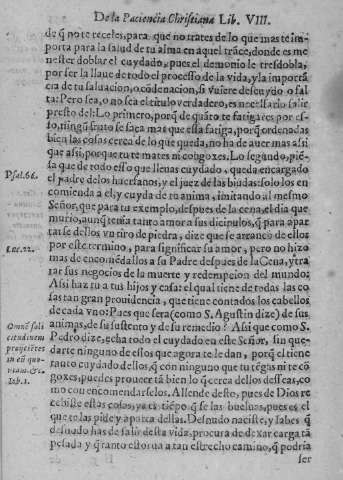 De la Paciencia Christiana Lib. VIII.
de q̃ no te receles, para que no trates de lo que mas te im
porta para la salud de tu alma en aquel trãce, donde es me
nester doblar el cuydado, pues el demonio le tresdobla,
por ser la llaue de todo el processo de la vida, y la importã
cia de tu saluacion, o cõdenacion, si vuiere descuydo o fal
ta: Pero sea, o no sea el titulo verdadero, es necessario salir
presto del: Lo primero, porq̃ de quãto te fatigares por es-
so, ningũ fruto se saca mas que essa fatiga, porq̃ ordenadas
bien las cosas cerca de lo que queda, no ha de auer mas assi
que assi, porque tu te mates ni congoxes. Lo segundo, piẽ
sa que de todo esso que llenas cuydado, queda encargado
el padre de los huerfanos, y el juez de las biudas: solo los en
comienda a el, y cuyda de tu anima, imitando al mesmo
Señor, que para tu exemplo, despues de la cena, el dia que
murio, aunq̃ tenia tanto amor a sus dicipulos, q̃ para apar
tarse dellos vn tiro de piedra, dize que se arranco de ellos
por este termino, para significar su amor, pero no hizo
mas de encomẽdallos a su Padre despues de la Cena, y tra
tar sus negocios de la muerte y redempcion del mundo:
Assi haz tu a tus hijos y casa: el qual tiene de todas las co
sas tan gran prouidencia, que tiene contados los cabellos
de cada vno: Pues que sera (como S. Agustin dize) de sus
animas, de su sustento y de su remedio? Assi que como S.
Pedro dize, echa todo el cuydado en este Señor, sin que-
darte ninguno de essos que agora te le dan, porq̃ el tiene
tanto cuydado dellos, q̃ con ninguno que tu tẽgas ni te cõ
goxes, puedes proueer tã bien lo q̃ cerca dellos desseas, co
mo con encomendarselos. Allende desto, pues de Dios re
cebiste estas cosas, ya es tiẽpo q̃ se las bueluas, pues es el
que te las pide y aparta dellas. Desnudo naciste, y sabes q̃
desnudo has de salir desta vida, procura de dexar carga tã
pesada y q̃ tanto estorua a tan estrecho camino, q̃ podria
ser
Psal. 66.
Luc. 22.
Omnẽ soli
citudinem
proycites
in eũ quo-
niam. &c.
Iob. 1.